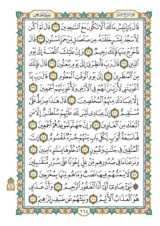 قَالَ يَٰٓإِبۡلِيسُ مَا لَكَ أَلَّا تَكُونَ مَعَ ٱلسَّٰجِدِينَ قَالَ لَمۡ أَكُن
لِّأَسۡجُدَ لِبَشَرٍ خَلَقۡتَهُۥ مِن صَلۡصَٰلٖ مِّنۡ حَمَإٖ مَّسۡنُونٖ
قَالَ فَٱخۡرُجۡ مِنۡهَا فَإِنَّكَ رَجِيمٞ وَإِنَّ عَلَيۡكَ ٱللَّعۡنَةَ إِلَىٰ يَوۡمِ
ٱلدِّينِ قَالَ رَبِّ فَأَنظِرۡنِيٓ إِلَىٰ يَوۡمِ يُبۡعَثُونَ قَالَ فَإِنَّكَ
مِنَ ٱلۡمُنظَرِينَ إِلَىٰ يَوۡمِ ٱلۡوَقۡتِ ٱلۡمَعۡلُومِ قَالَ رَبِّ بِمَآ
أَغۡوَيۡتَنِي لَأُزَيِّنَنَّ لَهُمۡ فِي ٱلۡأَرۡضِ وَلَأُغۡوِيَنَّهُمۡ أَجۡمَعِينَ
إِلَّا عِبَادَكَ مِنۡهُمُ ٱلۡمُخۡلَصِينَ قَالَ هَٰذَا صِرَٰطٌ عَلَيَّ
مُسۡتَقِيمٌ إِنَّ عِبَادِي لَيۡسَ لَكَ عَلَيۡهِمۡ سُلۡطَٰنٌ إِلَّا مَنِ
ٱتَّبَعَكَ مِنَ ٱلۡغَاوِينَ وَإِنَّ جَهَنَّمَ لَمَوۡعِدُهُمۡ أَجۡمَعِينَ
لَهَا سَبۡعَةُ أَبۡوَٰبٖ لِّكُلِّ بَابٖ مِّنۡهُمۡ جُزۡءٞ مَّقۡسُومٌ إِنَّ
ٱلۡمُتَّقِينَ فِي جَنَّٰتٖ وَعُيُونٍ ٱدۡخُلُوهَا بِسَلَٰمٍ ءَامِنِينَ
وَنَزَعۡنَا مَا فِي صُدُورِهِم مِّنۡ غِلٍّ إِخۡوَٰنًا عَلَىٰ سُرُرٖ مُّتَقَٰبِلِينَ
لَا يَمَسُّهُمۡ فِيهَا نَصَبٞ وَمَا هُم مِّنۡهَا بِمُخۡرَجِينَ
نَبِّئۡ عِبَادِيٓ أَنِّيٓ أَنَا ٱلۡغَفُورُ ٱلرَّحِيمُ وَأَنَّ عَذَابِي
هُوَ ٱلۡعَذَابُ ٱلۡأَلِيمُ وَنَبِّئۡهُمۡ عَن ضَيۡفِ إِبۡرَٰهِيمَ
٢٦٤